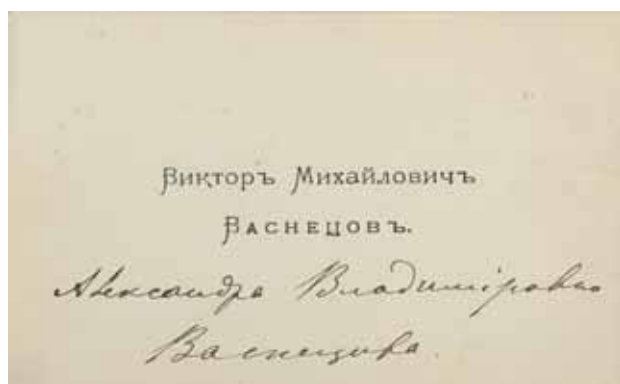 Викторъ Михайловичъ
Васнецовъ.
Александра Владиміровна
Васнецова.